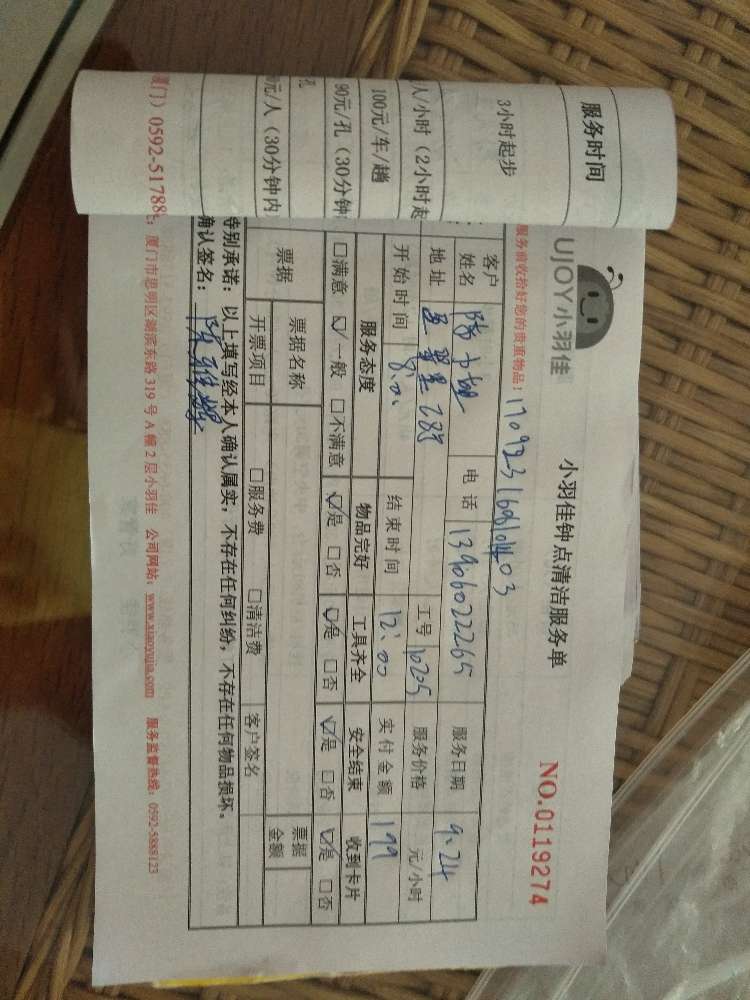 服务时间
3小时起步
人/小时（2小时起
100元/车/趟
90元/孔（30分钟
孔
元/人（30分钟内
厦门）0592-51788
UJOY小羽佳
小羽佳钟点清洁服务单
NO.0119274
服务前收拾好您的贵重物品！
客户姓名
电话 13906022265
服务日期 9.24
地址
工号 10205
服务价格 元/小时
开始时间 8:00
结束时间 12:00
实付金额 199
服务态度 物品完好 工具齐全 安全结束 收到卡片
□满意 ☑一般 □不满意 ☑是 □否 ☑是 □否 ☑是 □否 ☑是 □否
票据 票据名称 票据金额
开票项目 □服务费 □清洁费 客户签名
特别承诺：以上填写经本人确认属实，不存在任何纠纷，不存在任何物品损坏。
确认签名：
厦门市思明区湖滨东路 319 号 A 幢 2 层小羽佳 公司网站：www.xiaoyujia.com 服务监督热线：0592-5888123